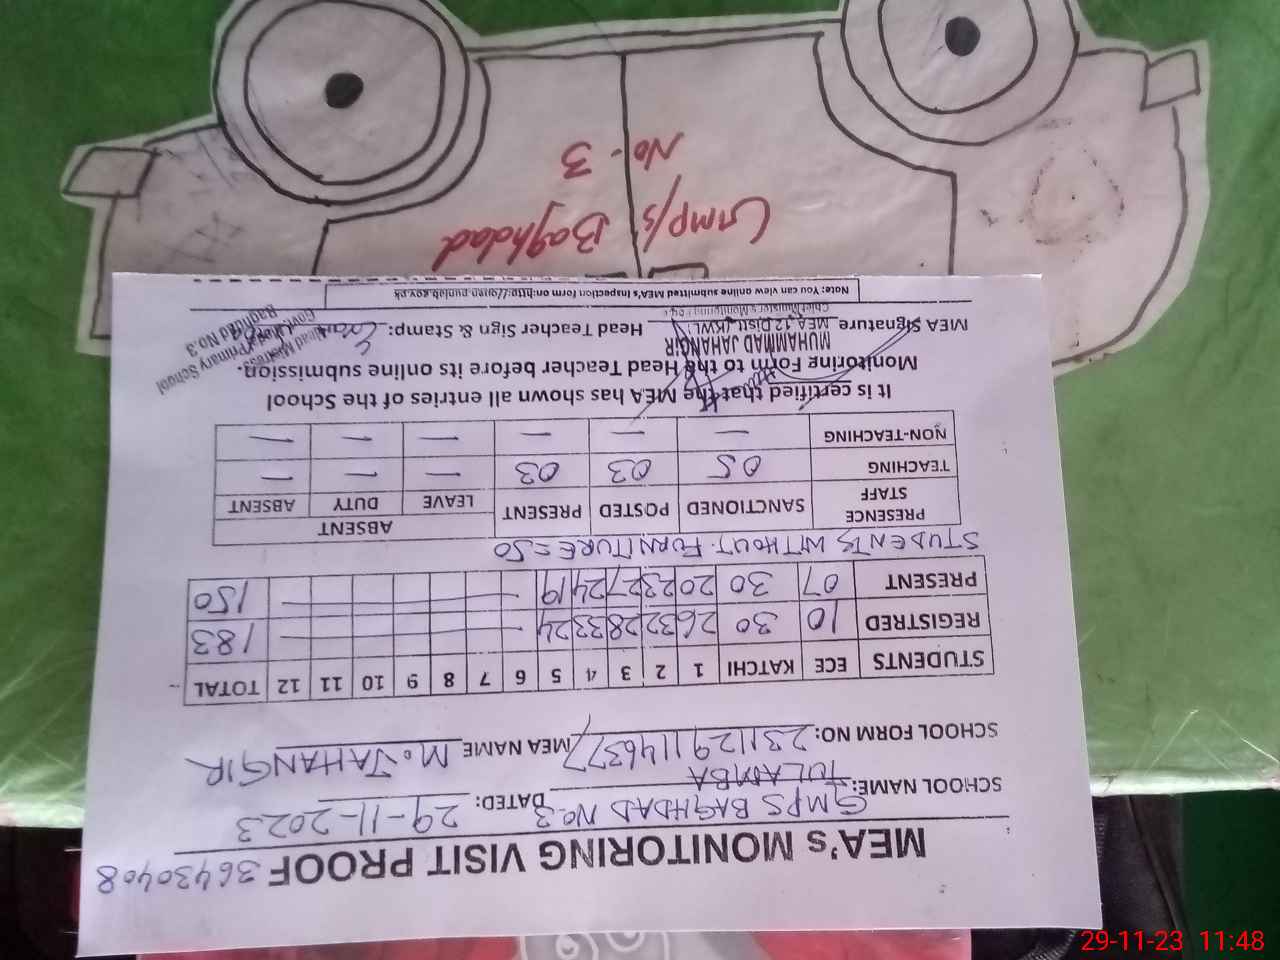 MEA's MONITORING VISIT PROOF 36430408
SCHOOL NAME: GMPS BAGHDAD NO.3 DATED: 29-11-2023
TULAMBA
SCHOOL FORM NO: 231129114637 MEA NAME M. JAHANGIR
STUDENTS ECE KATCHI 1 2 3 4 5 6 7 8 9 10 11 12 TOTAL
REGISTRED 10 30 26 32 28 33 24 183
PRESENT 07 30 20 23 27 24 19 150
STUDENTS WITHOUT FURNITURE = 50
PRESENCE STAFF SANCTIONED POSTED PRESENT ABSENT
LEAVE DUTY ABSENT
TEACHING 05 03 03 — — —
NON-TEACHING — — — — — —
It is certified that the MEA has shown all entries of the School
Monitoring Form to the Head Teacher before its online submission.
MUHAMMAD JAHANGIR
MEA Signature MEA-12 Distt (KWL) Head Teacher Sign & Stamp:
Chief Minister's Monitoring Force
Head Mistress
Govt. Primary School
Baghdad No.3
Note: You can view online submitted MEA's inspection form on:http://open.punjab.gov.pk
Gmp/s Baghdad
No-3
29-11-23 11:48